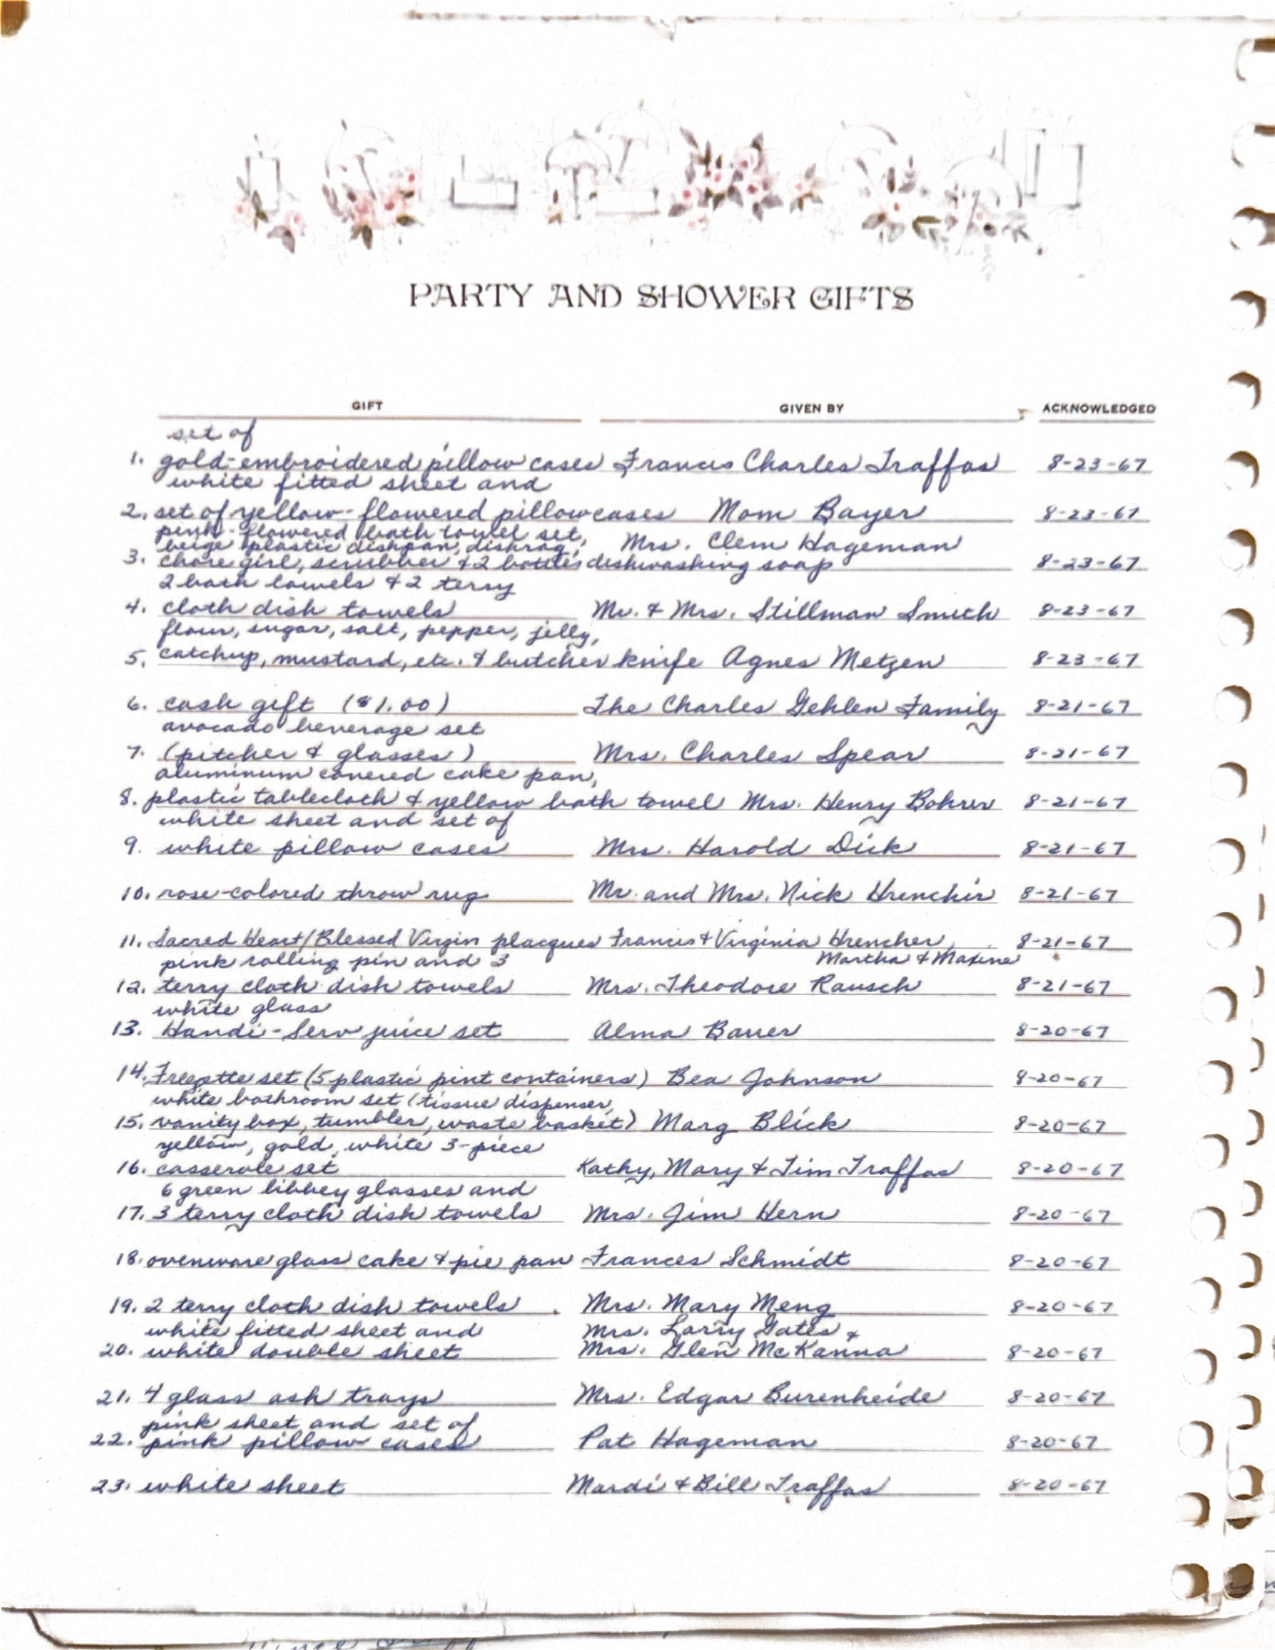 PARTY AND SHOWER GIFTS
GIFT GIVEN BY ACKNOWLEDGED
set of
1. gold-embroidered pillow cases Francis Charles Traffas 8-23-67
white fitted sheet and
2. set of yellow-flowered pillowcases Mom Bayer 8-23-67
pink-flowered bath towel set,
beige plastic dishpan, dishrag, Mrs. Clem Hageman
3. chore girl, scrubber & 2 bottles dishwashing soap 8-23-67
2 bath towels & 2 terry
4. cloth dish towels Mr. & Mrs. Stillman Smith 8-23-67
flour, sugar, salt, pepper, jelly,
5. catchup, mustard, etc. & butcher knife Agnes Metzen 8-23-67
6. cash gift ($1.00) The Charles Gehlen Family 8-21-67
avocado beverage set
7. (pitcher & glasses) Mrs. Charles Spear 8-21-67
aluminum covered cake pan,
8. plastic tablecloth & yellow bath towel Mrs. Henry Bohrer 8-21-67
white sheet and set of
9. white pillow cases Mrs. Harold Dick 8-21-67
10. rose-colored throw rug Mr. and Mrs. Nick Hrenchir 8-21-67
11. Sacred Heart/Blessed Virgin placques Francis & Virginia Hrencher, 8-21-67
pink rolling pin and 3 Martha & Maxine
12. terry cloth dish towels Mrs. Theodore Rausch 8-21-67
white glass
13. Handi-Serv juice set Alma Bauer 8-20-67
14. Freezette set (5 plastic pint containers) Bea Johnson 8-20-67
white bathroom set (tissue dispenser,
15. vanity box, tumbler, waste basket) Marg Blick 8-20-67
yellow, gold, white 3-piece
16. casserole set Kathy, Mary & Tim Traffas 8-20-67
6 green libbey glasses and
17. 3 terry cloth dish towels Mrs. Jim Hern 8-20-67
18. ovenware glass cake & pie pan Frances Schmidt 8-20-67
19. 2 terry cloth dish towels Mrs. Mary Meng 8-20-67
white fitted sheet and Mrs. Larry Gates &
20. white double sheet Mrs. Glen McKanna 8-20-67
21. 4 glass ash trays Mrs. Edgar Burenheide 8-20-67
pink sheet and set of
22. pink pillow cases Pat Hageman 8-20-67
23. white sheet Mardi & Bill Traffas 8-20-67